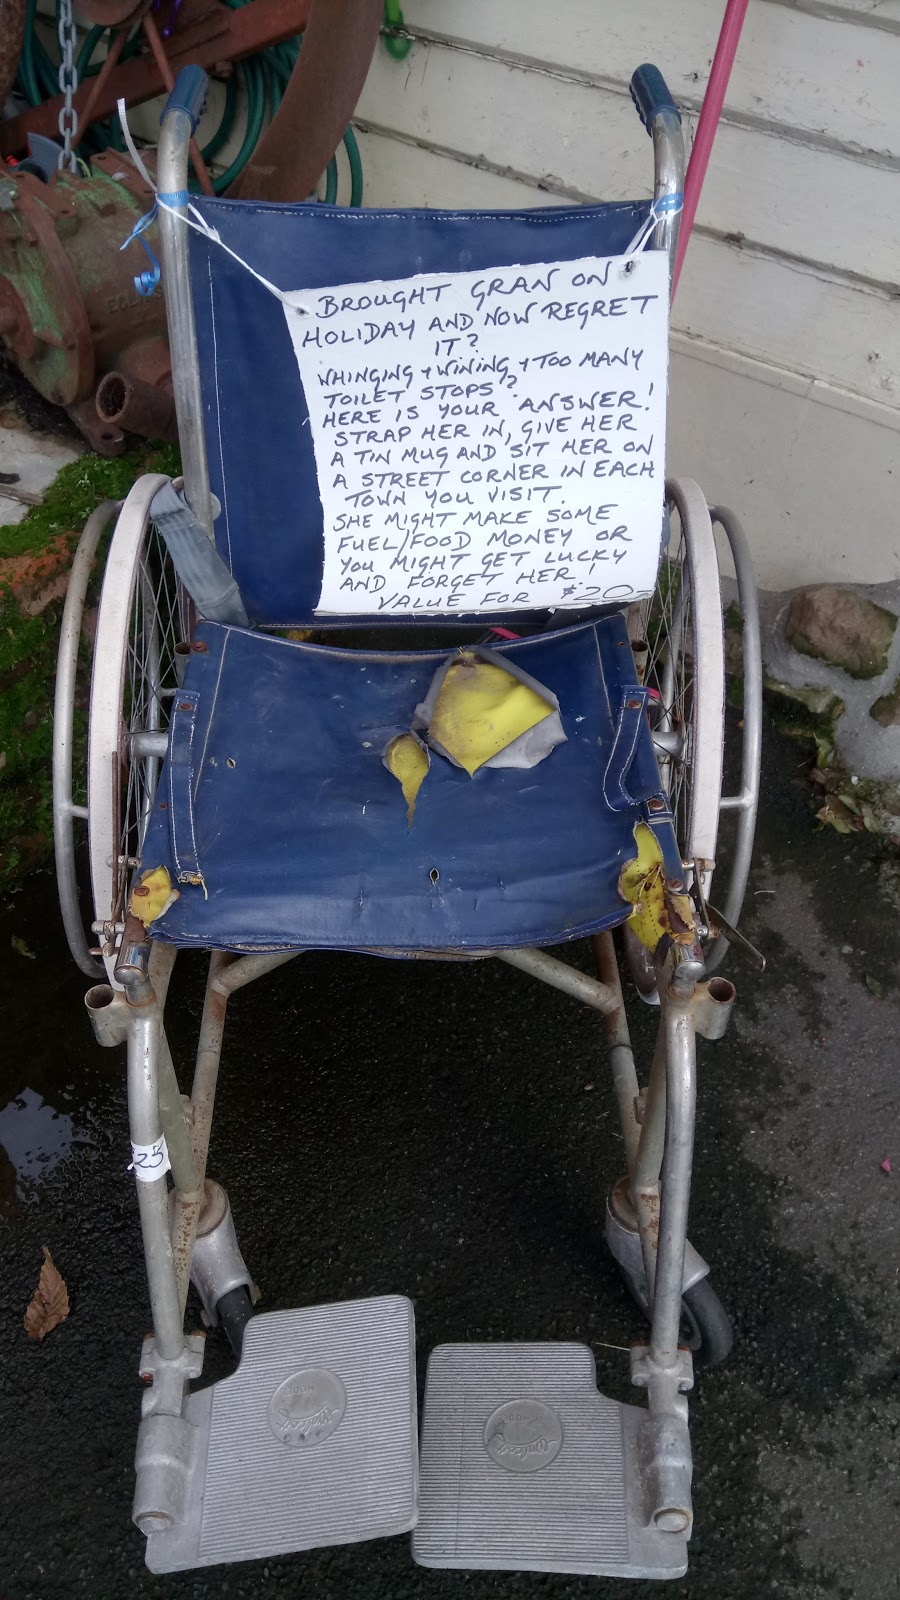 BROUGHT GRAN ON
HOLIDAY AND NOW REGRET
IT?
WHINGING + WINING + TOO MANY
TOILET STOPS?
HERE IS YOUR ANSWER!
STRAP HER IN, GIVE HER
A TIN MUG AND SIT HER ON
A STREET CORNER IN EACH
TOWN YOU VISIT.
SHE MIGHT MAKE SOME
FUEL/FOOD MONEY OR
YOU MIGHT GET LUCKY
AND FORGET HER!
VALUE FOR $20-
25
MODEL
MODEL